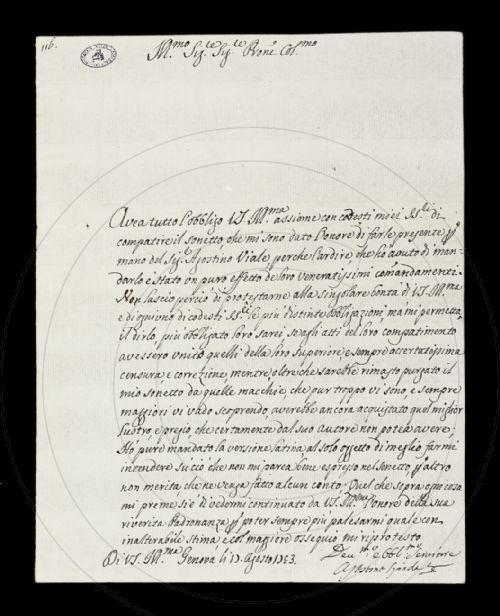 116.
Ill.mo Sig.re Sig.re Prone Col.mo
Avea tutto l'obbligo VS. Ill.ma assieme con codesti miei SS.ri di
compatire il sonetto, che mi sono dato l'onore di farle presente p
mano del Sig.r Agostino Viale, perche l'ardire che ho avuto di man-
darlo è stato un puro effetto de loro veneratissimi comandamenti.
Non lascio perciò di protestarne alla singolare bontà di VS. Ill.ma
e di quivno di codesti SS.ri le più distinte obbligazioni, ma mi permetta
il dirlo, più obbligato loro sarei se agli atti del loro compatimento
avessero unito quelli della loro superiore, e sempre accertatissima
censura, e correzione, mentre, oltre che sarebbe rimasto purgato il
mio sonetto da quelle macchie, che pur troppo vi sono, e sempre
maggiori vi vado scoprendo, averebbe ancora acquistato quel miglior
lustro, e pregio, che certamente dal suo autore non potea avere;
Hò pure mandato la versione latina al solo oggetto di meglio farmi
intendere su ciò che non mi parea bene espresso nel sonetto, p altro
non merita, che ne venga fatto alcun conto. Quel che sopra ogni cosa
mi preme si è di vedermi continuato da VS. Ill.ma l'onore della sua
riverita Padronanza p poter sempre più palesarmi quale con
inalterabile stima, e col maggiore ossequio mi riprotesto
Di VS. Ill.ma Genova li 17. Agosto 1753.
Dev.mo e Obbl.mo Servitore
Agostino